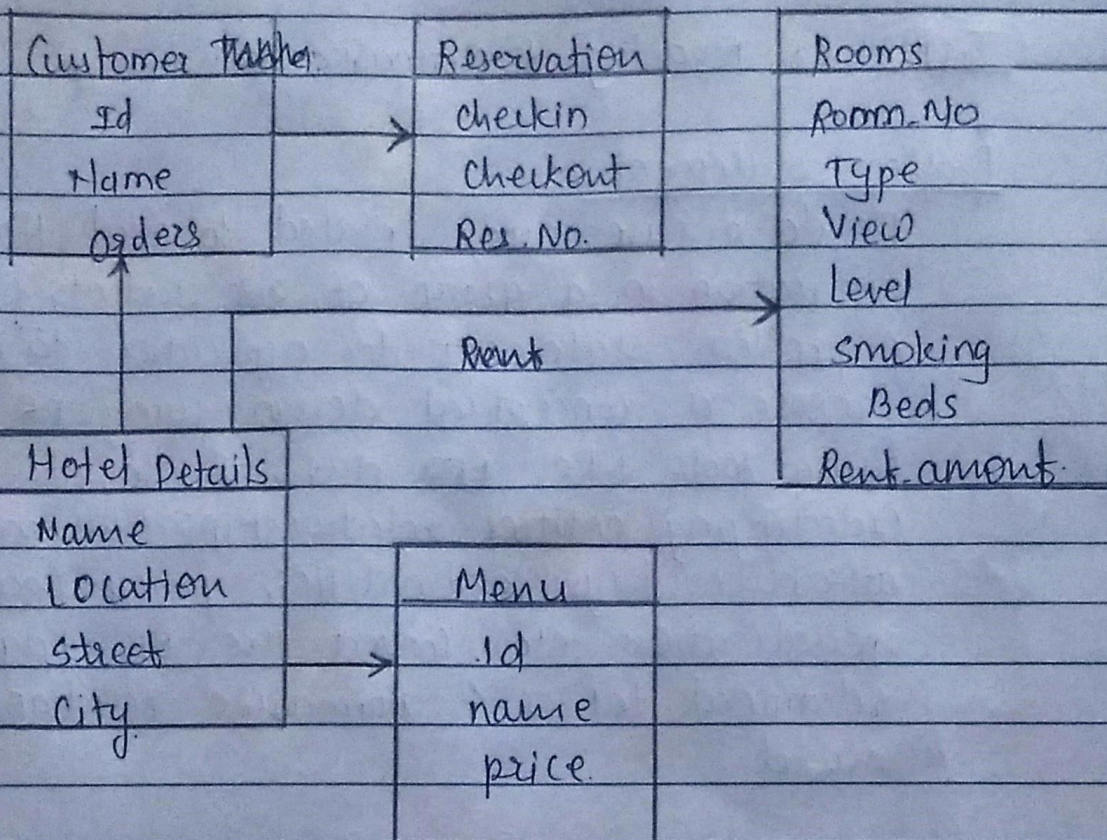 Customer
Id
Name
Orders
Reservation
Checkin
Checkout
Res. No.
Rooms
Room.No
Type
View
Level
Smoking
Beds
Rent.amont.
Rent
Hotel Details
Name
Location
Street
City.
Menu
Id
name
price.